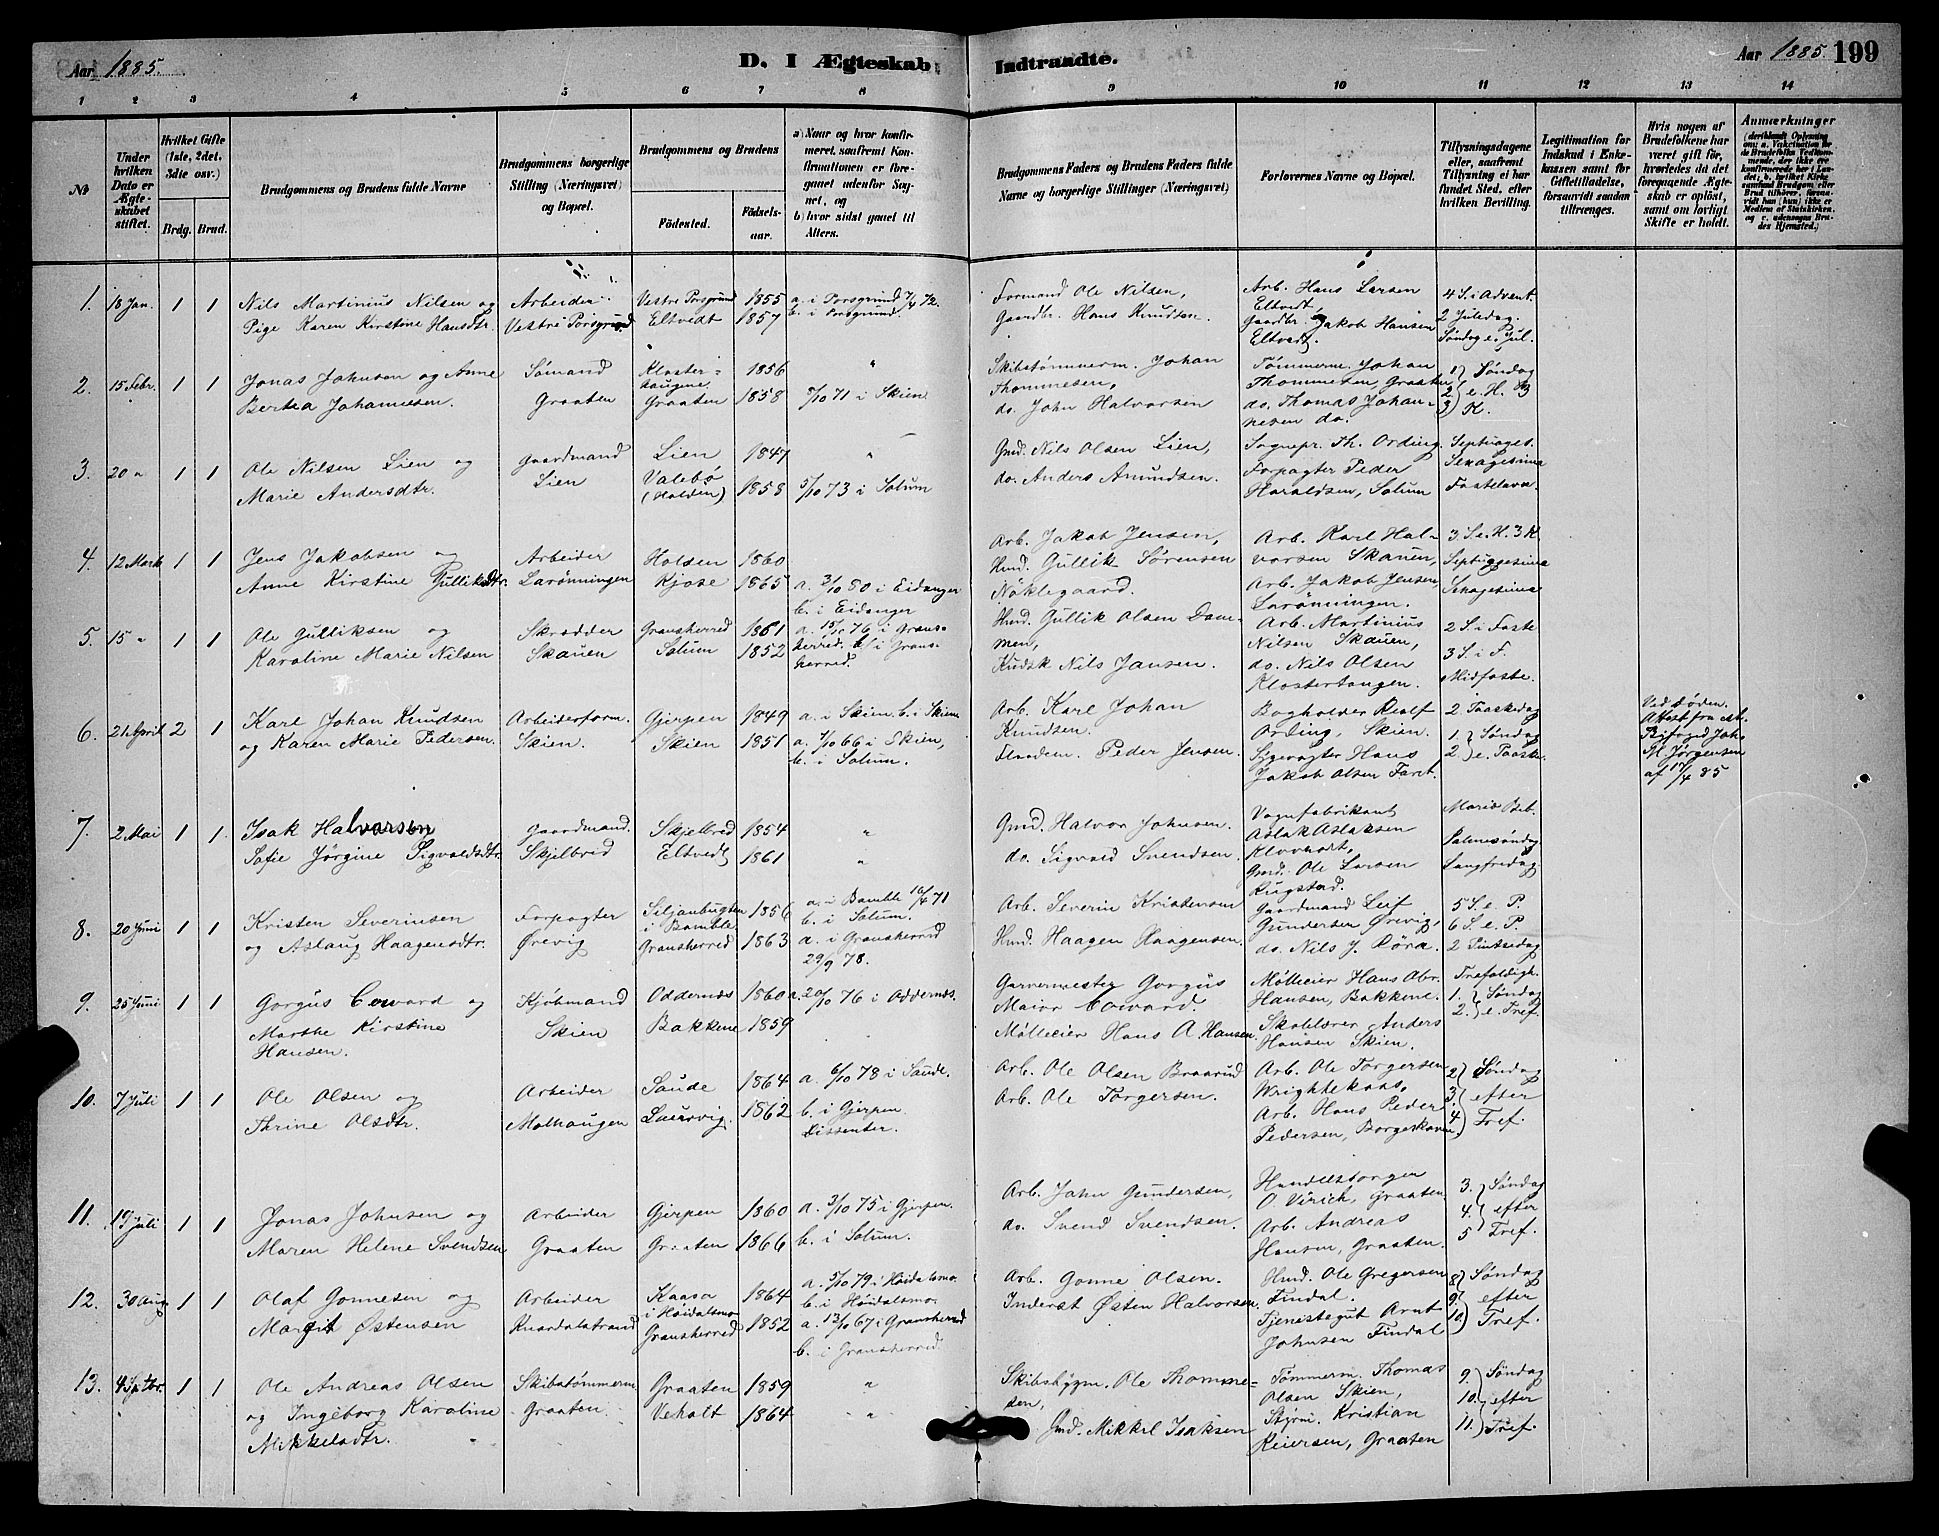 Aar 1885. D. I Ægteskab Indtraadte. Aar 1885. 199
1 2 3 4 5 6 7 8 9 10 11 12 13 14
№
Under hvilken Dato er Ægteskabet stiftet.
Hvilket Gifte (1ste, 2det, 3die osv.)
Brdg. Brud.
Brudgommens og Brudens fulde Navne
Brudgommens borgerlige Stilling (Næringsvei) og Bopæl.
Brudgommens og Brudens
Fødested. Fødselsaar.
a) Naar og hvor konfirmeret, saafremt Konfirmationen er foregaaet udenfor Sognet, og
b) hvor sidst gaaet til Alters.
Brudgommens Faders og Brudens Faders fulde Navne og borgerlige Stillinger (Næringsvei)
Forlovernes Navne og Bopæl.
Tillysningsdagene eller, saafremt Tillysning ei har fundet Sted, efter hvilken Bevilling.
Legitimation for Indskud i Enkekassen samt for Giftetilladelse, forsaavidt saadan tiltrænges.
Hvis nogen af Brudefolkene har været gift før, hvorledes da det foregaaende Ægteskab er opløst, samt om lovligt Skifte er holdt.
Anmærkninger
(deriblandt Oplysning om: a. Vaccination for de Brudefolks Vedkommende, der ikke ere konfirmerede her i Landet, b. hvilket Kirkesamfund Brudgom eller Brud tilhører, forsaavidt han (hun) ikke er Medlem af Statskirken, og c. udensogns Brudes Hjemsted.)
1. 18 Jan. 1 1 Nils Martinius Nilsen og Arbeider Vestre Porsgrund 1855 a. i Porsgrund 7/4 72.
Pige Karen Kirstine Hansdtr. Vestre Porsgrund Eltvedt 1857 b. i Porsgrund.
Formand Ole Nilsen, Arb. Hans Larsen Eltvedt 4 S. i Advent.
Gaardbr. Hans Knudsen. Gaardbr. Jakob Hansen Eltvedt. 2 Juledag. Søndag e. Jul.
2. 15 Febr. 1 1 Jonas Johnsen og Anne Sømand Klosterhaugene 1856 "
Bertea Johannesen. Graaten Graaten 1858 8/10 71 i Skien
Skibstømmerm. Johan Thommesen, Tømmerm. Johan Thommesen, Graaten 1) Søndag
do. John Halvorsen do. Thomas Johannesen do. 2) e. H. 3 3) K.
3. 20 " 1 1 Ole Nilsen Lien og Gaardmand Lien 1847 "
Marie Andersdtr. Lien Valebø (Holden) 1858 5/10 73 i Solum
Gmd. Nils Olsen Lien, Sognepr. Th. Ording. Septuages.
do. Anders Amundsen. Forpagter Peder Haraldsen, Solum Sexagesima Fastelavn.
4. 12 Marts 1 1 Jens Jakobsen og Arbeider Holsen 1860
Anne Kirstine Gulliksdtr. Larønningen Kjose 1865 a. 3/10 80 i Eidanger
b. i Eidanger
Arb. Jakob Jensen, Arb. Karl Halvorsen Skauen, 3 S. e. H. 3 K.
Hmd. Gullik Sørensen Nøklegaard. Arb. Jakob Jensen, Larønningen. Septuagesima Sexagesima
5. 15 " 1 1 Ole Gulliksen og Skrædder Gransherred 1861 a. 15/10 76 i Gransherred. b. i Gransherred.
Karoline Marie Nilsen Skauen Solum 1852
Hmd. Gullik Olsen Dammen, Arb. Martinius Nilsen Skauen, 2 S. i Faste
Kudsk Nils Jansen. do. Nils Olsen Klostertangen. 3 S. i F. Midfaste.
6. 21 April 2 1 Karl Johan Knudsen Arbeiderform. Gjerpen 1849 a. i Skien. b. i Skien
og Karen Marie Pedersen. Skien. Skien 1851 a. 7/10 66 i Skien, b. i Solum.
Arb. Karl Johan Knudsen. Bogholder Realf Ording, Skien. 2 Paaskedag
Peder Jensen. Sygevogter Hans Jakob Olsen Faret. 1.) Søndag 2.) e. Paaske
Ved Døden. Attest fra Joh. M. Jørgensen af 17/4 85
7. 2 Mai 1 1 Isak Halvorsen Gaardmand. Skjelbred 1854 "
Sofie Jørgine Sigvaldsdtr. Skjelbred Eltvedt 1861 "
Gmd. Halvor Johnsen. Vognfabrikant Aslak Aslaksen Klovholt, Mariæ Beb.
do. Sigvald Svendsen. Gmd. Ole Larsen Rugstad. Palmesøndag Langfredag
8. 20 Juni 1 1 Kristen Severinsen Forpagter Siljanbugten i Bamble 1856 a. i Bamble 16/4 71 b. i Solum.
og Aslaug Haagensdtr. Ørevig Gransherred 1863 a. i Gransherred 29/9 78.
Arb. Severin Kristensen Gaardmand Leif Gundersen Ørevig, 5 S. e. P.
Hmd. Haagen Haagensen. do. Nils J. Røra. 6 S. e. P. 2 Pintsedag
9. 25 Juni 1 1 Gorgus Coward og Kjøbmand Oddernæs 1860 a. 20/10 76 i Oddernæs.
Marthe Kirstine Hansen. Skien Bakkene 1859
Garvermester Gorgus Maior Coward. Mølleeier Hans Abr. Hansen, Bakkene. Trefoldigh.
Mølleeier Hans A. Hansen. Skolelærer Anders Hansen Skien. 1.) Søndag 2.) e. Tref.
10. 7 Juli 1 1 Ole Olsen og Arbeider Saude 1864 a. 6/10 78 i Saude.
Thrine Olsdtr. Molhaugen Laurvig. 1862 b. i Gjerpen. Dissenter.
Arb. Ole Olsen Braarud Arb. Ole Torgersen Wrightekaas, 2) Søndag
Arb. Ole Torgersen. Arb. Hans Peder Pedersen, Borgeskoven 3.) efter 4.) Tref.
11. 19 Juli 1 1 Jonas Johnsen og Arbeider Gjerpen 1860 a. 3/10 75 i Gjerpen.
Maren Helene Svendsen Graaten Graaten 1866 b. i Solum.
Arb. John Gundersen, O. Virich, Graaten 3.) Søndag
do. Svend Svendsen. Arb. Andreas Hansen, Graaten. 4.) efter 5) Tref.
12. 30 Aug. 1 1 Olaf Gonnesen og Arbeider Kaasa i Høidalsmo 1864 a. 5/10 79 i Høidalsmo. b. i Høidalsmo.
Margit Østensen Knardalstrand Gransherred 1852 a. 13/10 67 i Gransherred b. i Gransherred
Arb. Gonne Olsen. Hmd. Ole Gregersen Findal. 8) Søndag
Inderst Østen Halvorsen. Tjenestegut Arnt Johnsen Findal 9.) efter 10.) Tref.
13. 4 Septbr. 1 1 Ole Andreas Olsen Skibstømmerm. Graaten 1859 "
og Ingeborg Karoline Mikkelsdtr. Graaten. Veholt 1864 "
Skibsbygm. Ole Thommesen, Tømmerm. Thomas Olsen Skien, 9.) Søndag
Gmd. Mikkel Isaksen Styrm. Kristian Reiersen, Graaten 10.) efter 11.) Tref.